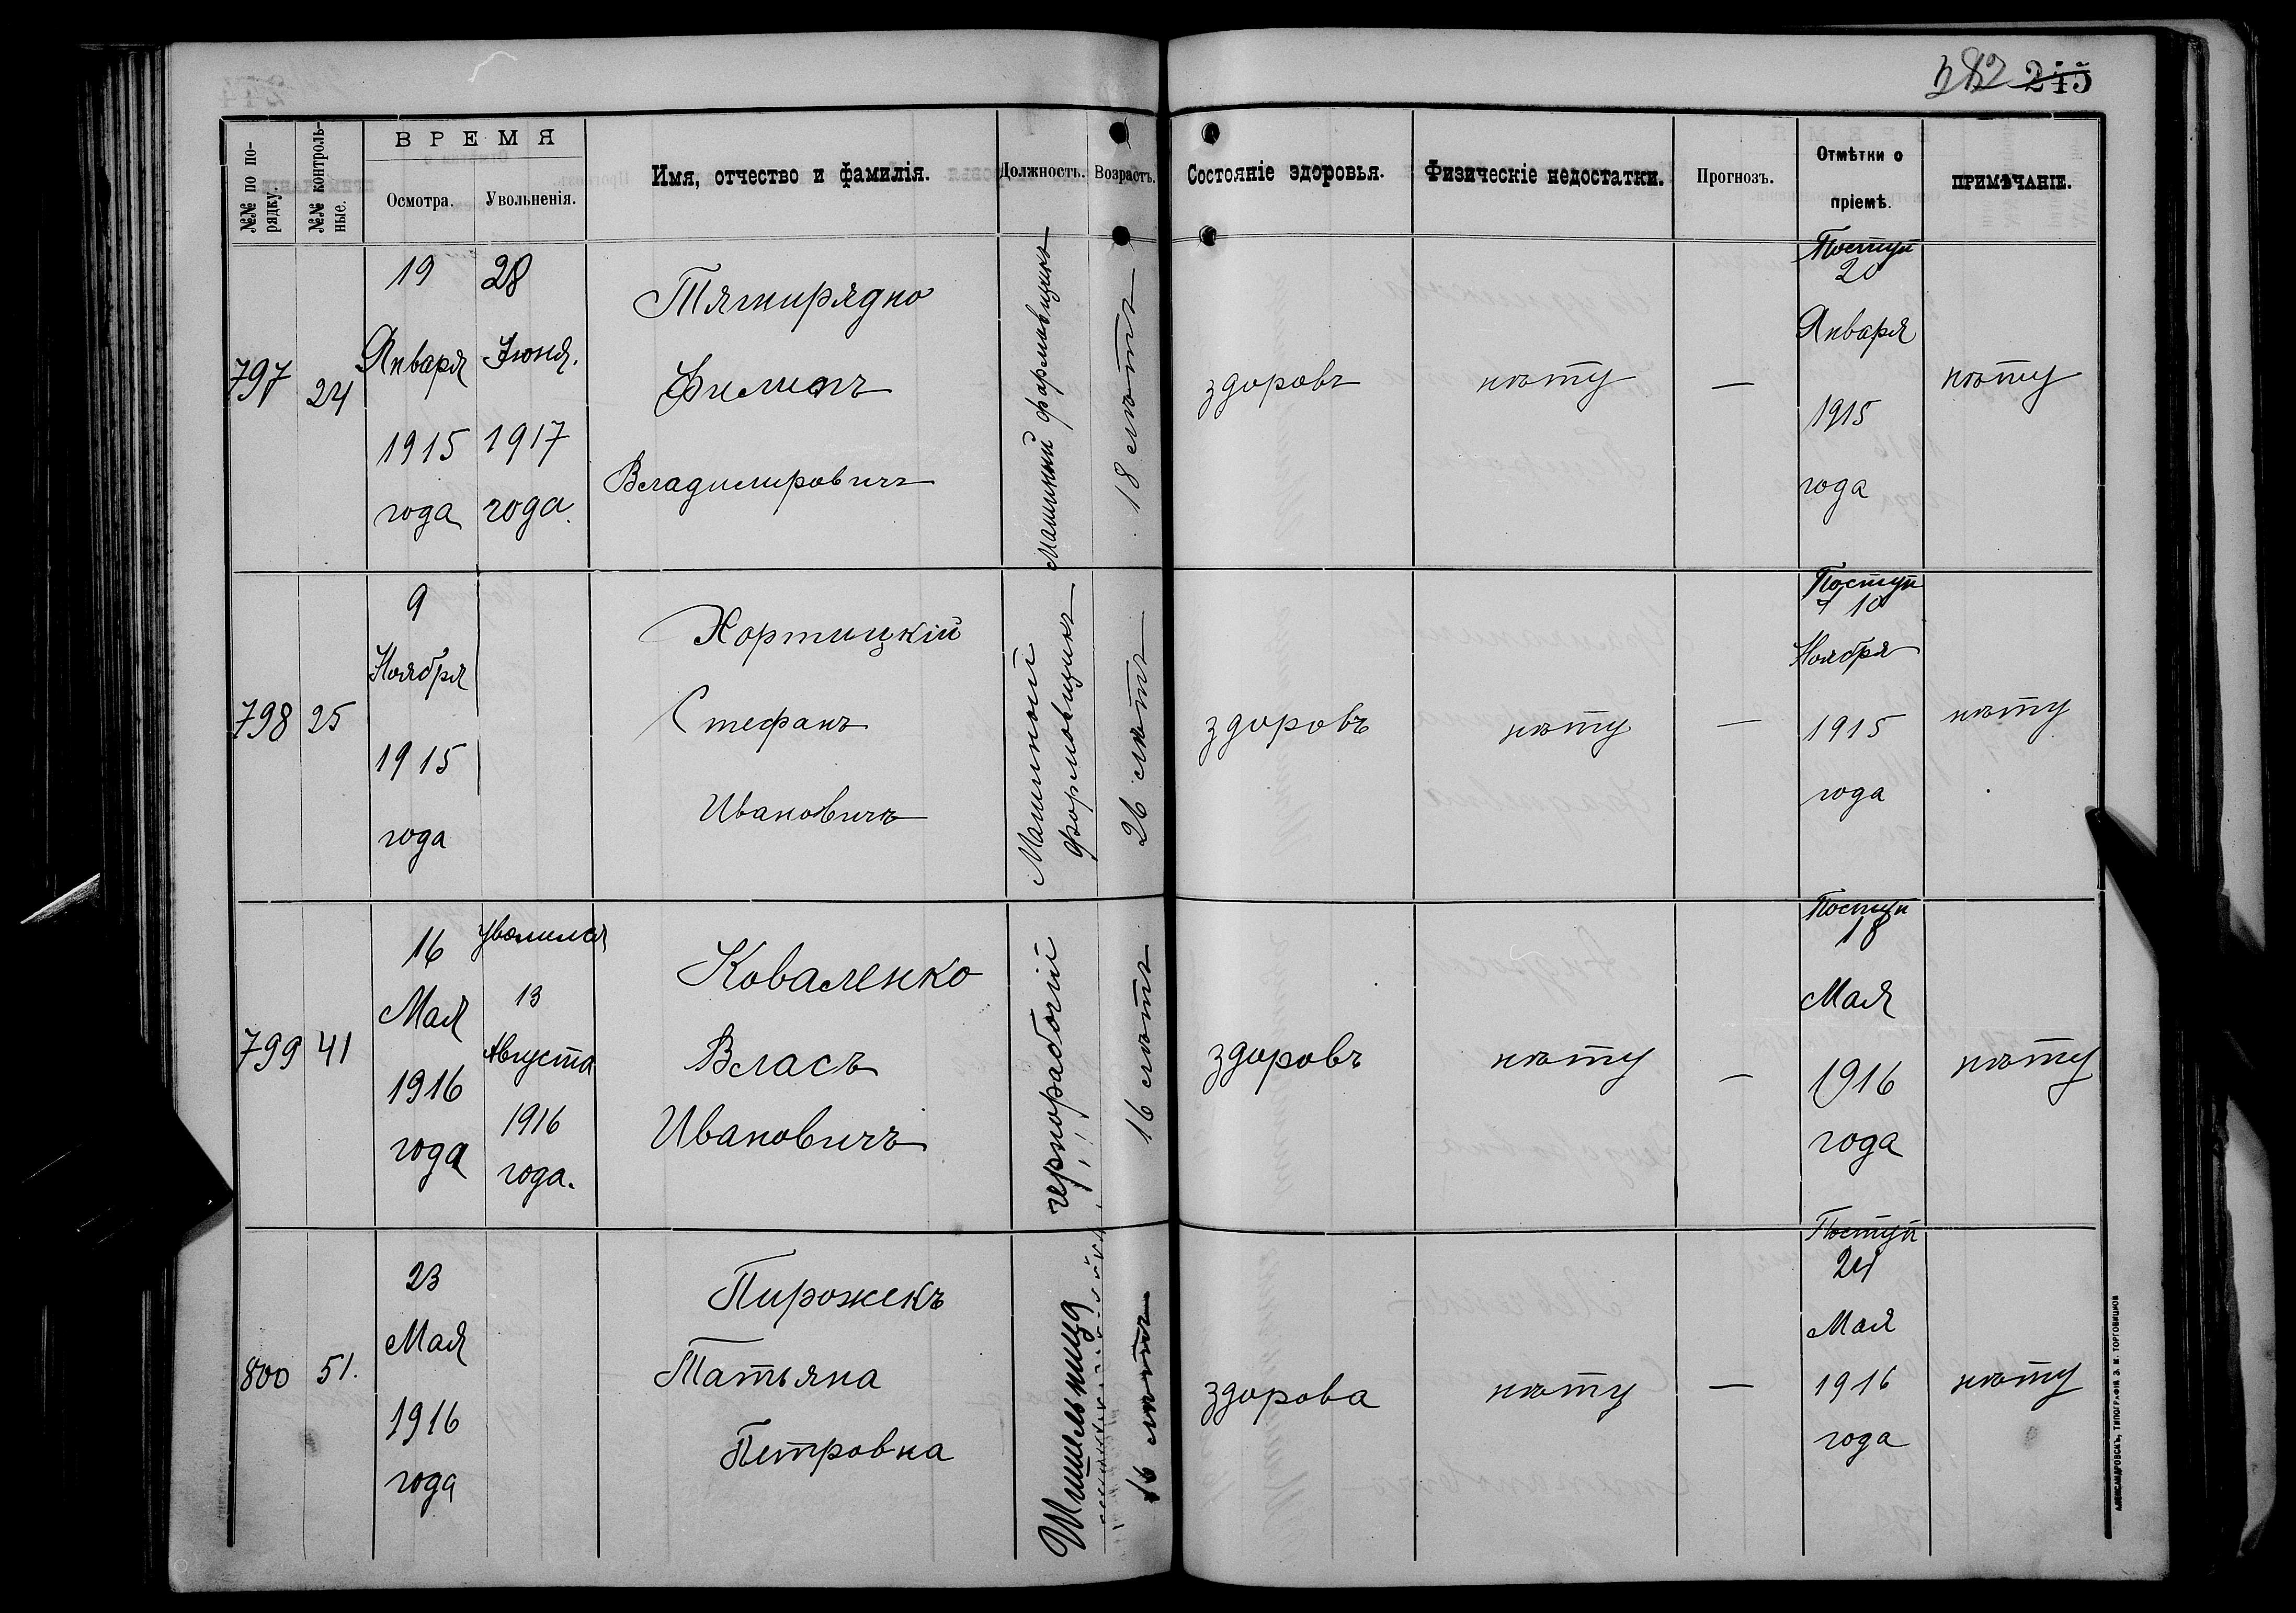 382 245
№№ по порядку.
№№ контрольные.
ВРЕМЯ
Осмотра.
Увольненія.
Имя, отчество и фамилія.
Должность.
Возрастъ.
Состояніе здоровья.
Физическіе недостатки.
Прогнозъ.
Отмѣтки о
пріемѣ.
ПРИМѢЧАНІЕ.
797
24
19
Января
1915
года
28
Іюня.
1917
года.
Тягнирядно
Филипъ
Владимировичъ
Машинный формовщикъ
18 лѣтъ
здоровъ
нѣту
—
Поступ
20
Января
1915
года
нѣту
798
25
9
Ноября
1915
года
Хортицкій
Стефанъ
Ивановичъ
Машинный
формовщикъ
26 лѣтъ
здоровъ
нѣту
—
Поступ
10
Ноября
1915
года
нѣту
799
41
16
Мая
1916
года
Уволился
13
Августа
1916
года.
Коваленко
Власъ
Ивановичъ
чернорабочій
16 лѣтъ
здоровъ
нѣту
—
Поступ
18
Мая
1916
года
нѣту
800
51.
23
Мая
1916
года
Пирожекъ
Татьяна
Петровна
Шишельница
16 лѣтъ
здорова
нѣту
—
Поступ
24
Мая
1916
года
нѣту
АЛЕКСАНДРОВСКЪ, ТИПОГРАФІЯ Э. И. ТОРГОВИЦКОВ